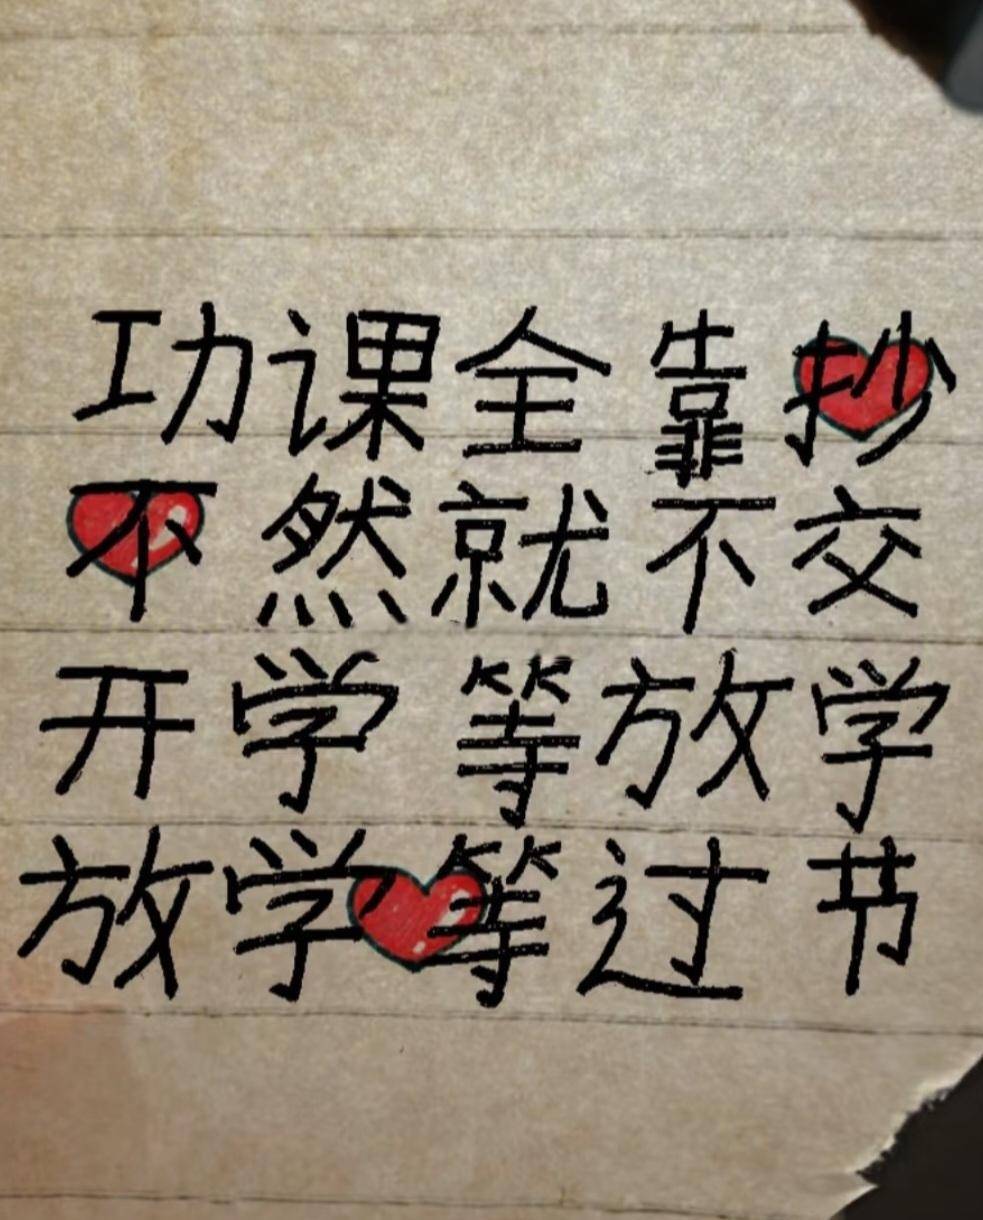 功课全靠抄
不然就不交
开学等放学
放学等过节